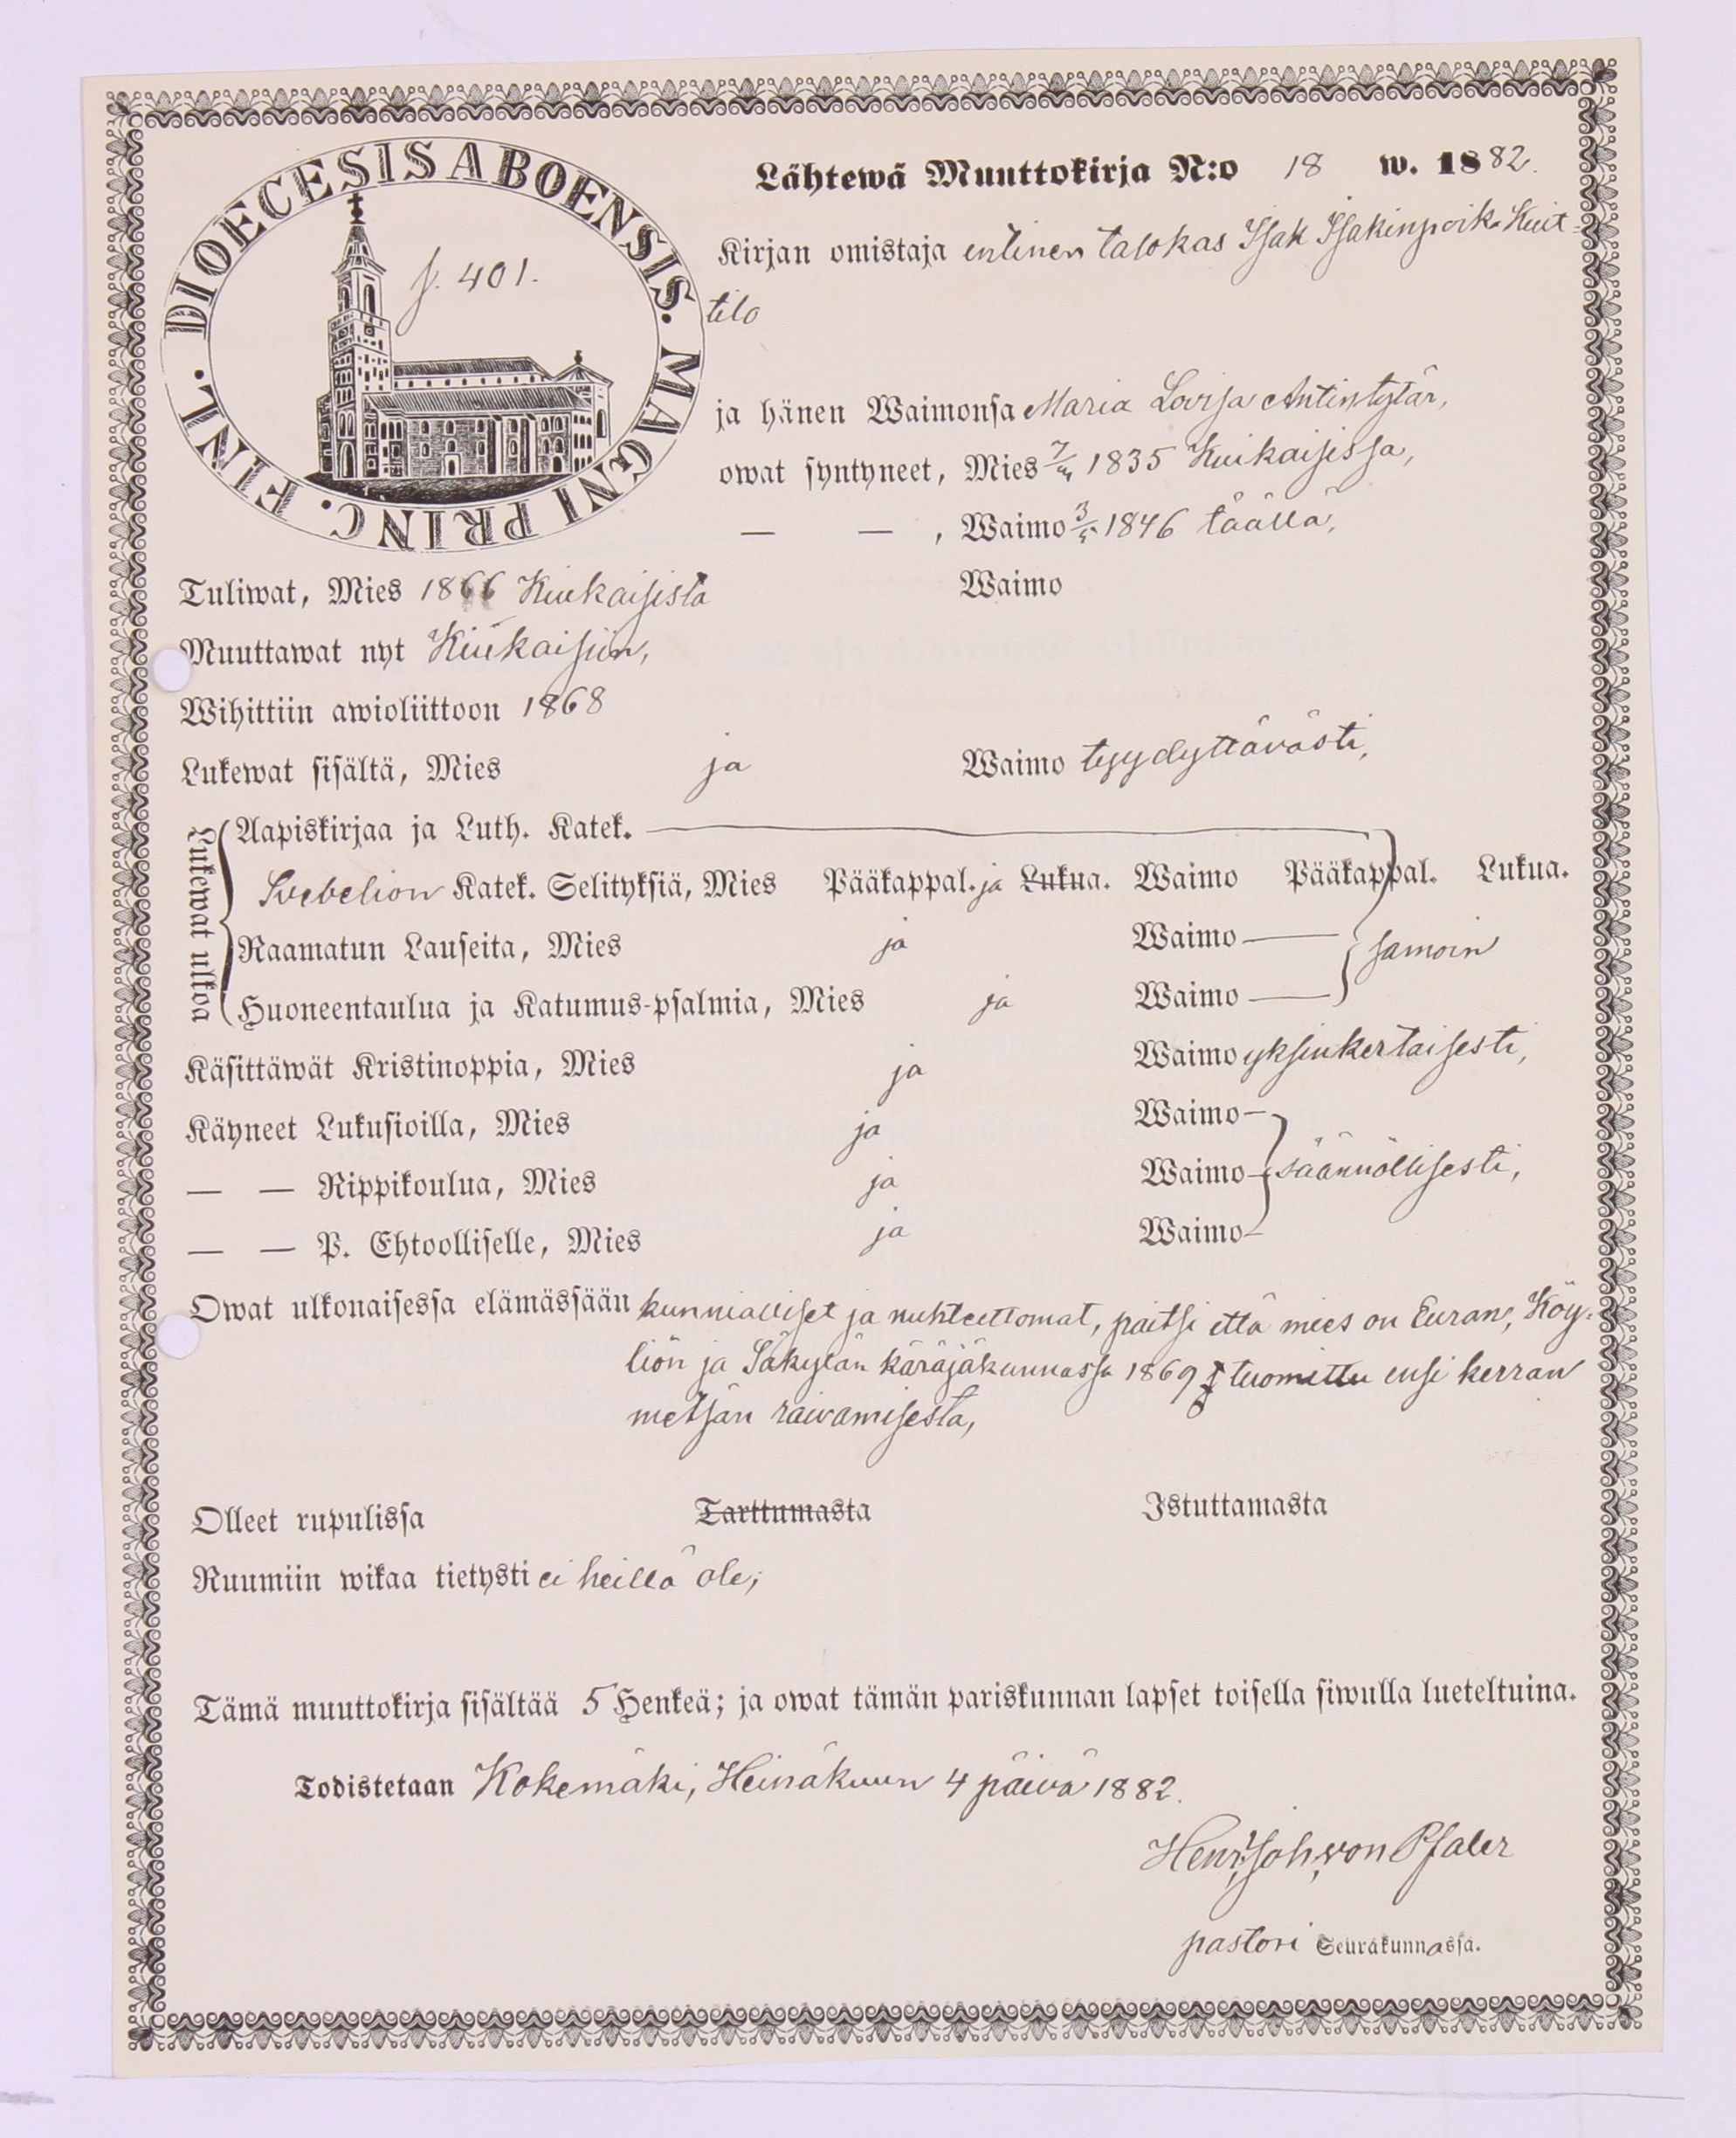 DIOECESIS ABOENSIS. MAGNI PRINC. FINL.
p. 401.
Lähtewä Muuttokirja N:o 18 w. 1882.
Kirjan omistaja entinen talokas Isak Isakinpoik. Kuit-
tilo
ja hänen Waimonsa Maria Lovisa Antintytär,
owat syntyneet, Mies 7/ 1835 Kiukaisissa,
— — , Waimo 3/5 1846 täällä,
Tuliwat, Mies 1866 Kiukaisista Waimo
Muuttawat nyt Kiukaisiin,
Wihittiin awioliittoon 1868
Lukewat sisältä, Mies ja Waimo tyydyttävästi,
Lukewat ulkoa
Aapiskirjaa ja Luth. Katek.
Svebelion Katek. Selityksiä, Mies Pääkappal. ja Lukua. Waimo Pääkappal. Lukua.
Raamatun Lauseita, Mies ja Waimo — samoin
Huoneentaulua ja Katumus-psalmia, Mies ja Waimo —
Käsittäwät Kristinoppia, Mies ja Waimo yksinkertaisesti,
Käyneet Lukusioilla, Mies ja Waimo —
— — Rippikoulua, Mies ja Waimo — säännöllisesti,
— — P. Ehtoolliselle, Mies ja Waimo —
Owat ulkonaisessa elämässään kunnialliset ja nuhteettomat, paitsi että mies on Euran, Köy-
liön ja Säkylän käräjäkunnassa 1869 tuomittu ensi kerran
metsän raivamisesta,
Olleet rupulissa Tarttumasta Istuttamasta
Ruumiin wikaa tietysti ei heillä ole;
Tämä muuttokirja sisältää 5 Henkeä; ja owat tämän pariskunnan lapset toisella siwulla lueteltuina.
Todistetaan Kokemäki, Heinäkuun 4 päivä 1882.
Henr. Joh. von Pfaler
pastori Seurakunnassa.